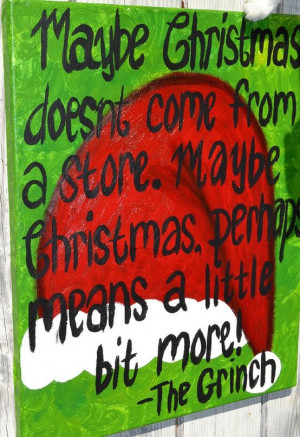 Maybe Christmas
doesnt come from
a store. Maybe
Christmas, perhaps
means a little
bit more!
-The Grinch